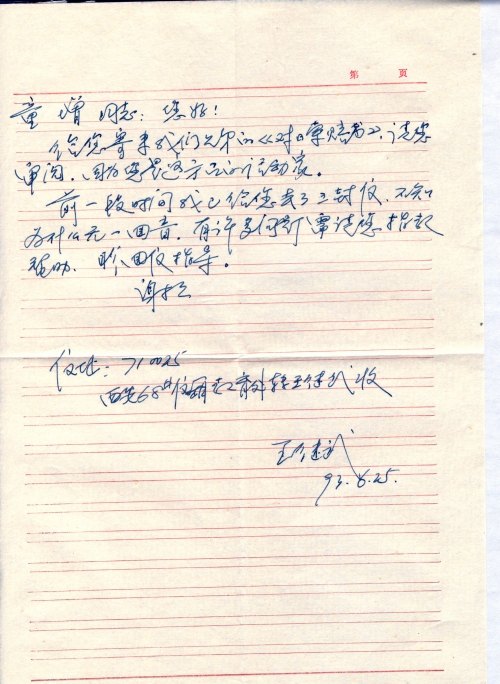 第 页
童增同志：您好！
给您寄来我们兄弟的《对日索赔书》，请您
审阅。
前一段时间我已给您去了三封信，不知
为什么无一回音。有许多问题需请您指教
帮助。盼回信指导。
谢谢
信址：710025
西安68 信箱 转王 武收
王 武
93.6.25.